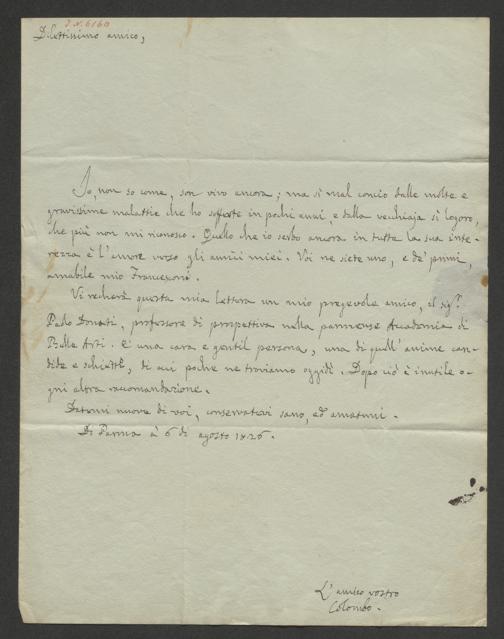 J.N. 6160
Dilettissimo amico,
Io, non so come, son vivo ancora; ma sì mal concio dalle molte e
gravissime malattie che ho sofferte in pochi anni, e dalla vecchiaja sì logoro,
che più non mi riconosco. Quello che io serbo ancora in tutta la sua inte-
rezza è l'amore verso gli amici miei. Voi ne siete uno, e de' primi,
amabile mio Francesconi.
Vi recherà questa mia lettera un mio pregevole amico, il sigr.
Paolo Donati, professore di prospettiva nella parmense Accademia di
Belle Arti. È una cara e gentil persona, una di quell' anime can-
dide e schiette, di cui poche ne troviamo oggidì. Dopo ciò è inutile o-
gni altra raccomandazione.
Datemi nuove di voi, conservatevi sano, ed amatemi.
Di Parma à 6 di agosto 1826.
L'amico vostro
Colombo.